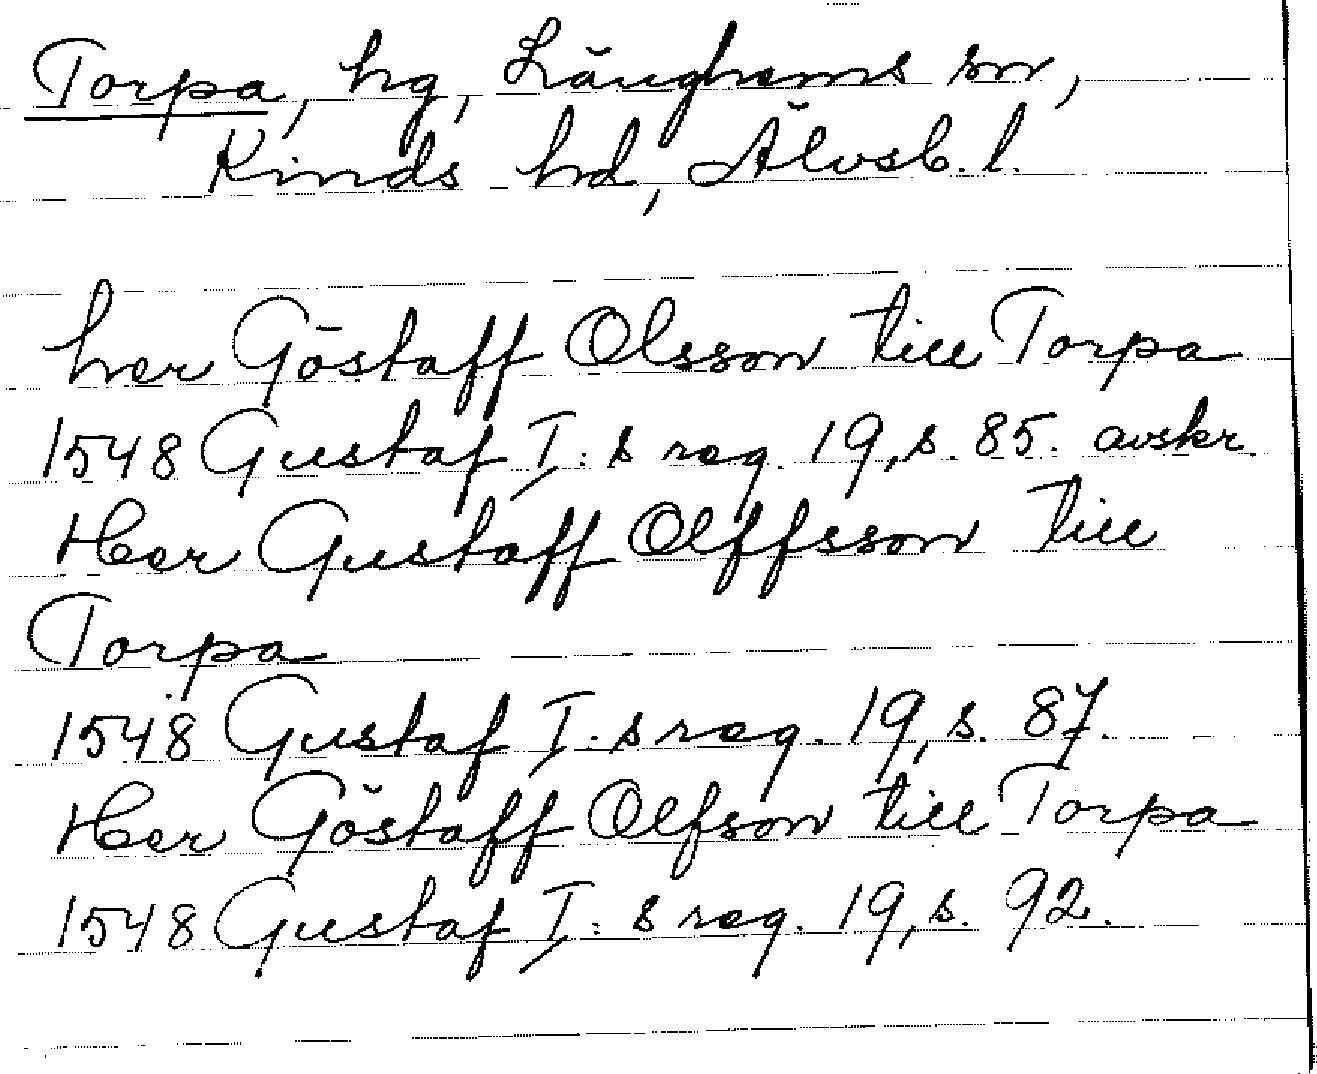 Torpa, hg, Länghems sn,
Kinds hd, Älvsb. l.
her Göstaff Olsson till Torpa
1548 Gustaf I:s reg. 19, s. 85. avskr.
Her Gustaff Olffsson till
Torpa
1548 Gustaf I:s reg. 19, s. 87.
Her Göstaff Olfson till Torpa
1548 Gustaf I:s reg. 19, s. 92.